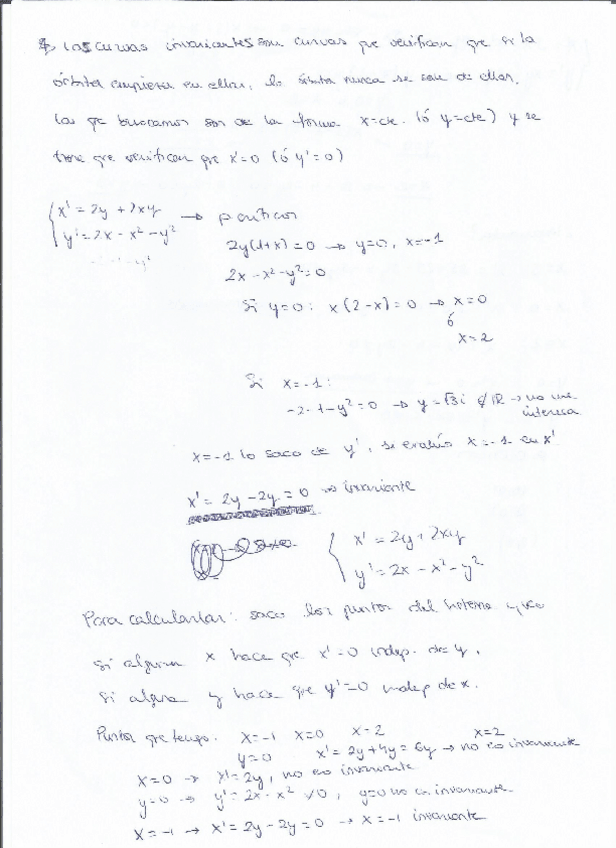 Las curvas invariantes son curvas que verifican que si la
órbita empieza en ellas, la órbita nunca se sale de ellas.
Las que buscamos son de la forma x=cte. (ó y=cte) y se
tiene que verificar que x'=0 (ó y'=0)
x' = 2y + 2xy → p críticos
y' = 2x - x² - y²
2y(1+x)=0 → y=0, x=-1
2x - x² - y² = 0
Si y=0: x(2-x)=0 → x=0
ó
x=2
Si x=-1:
-2-1-y²=0 → y=√3i ∉ ℝ → no me
interesa
x=-1 lo saco de y', se evalúo x=-1 en x'
x' = 2y - 2y = 0 → invariante
x' = 2y + 2xy
y' = 2x - x² - y²
Para calcularlas: saco los puntos del sistema y veo
si algún x hace que x'=0 indep. de y,
si algún y hace que y'=0 indep de x.
Puntos que tengo: x=-1 x=0 x=2 x=2
y=0 x' = 2y+4y=6y → no es invariante
x=0 → x'=2y, no es invariante
y=0 → y'=2x-x² ≠0, y=0 no es invariante
x=-1 → x'=2y-2y=0 → x=-1 invariante